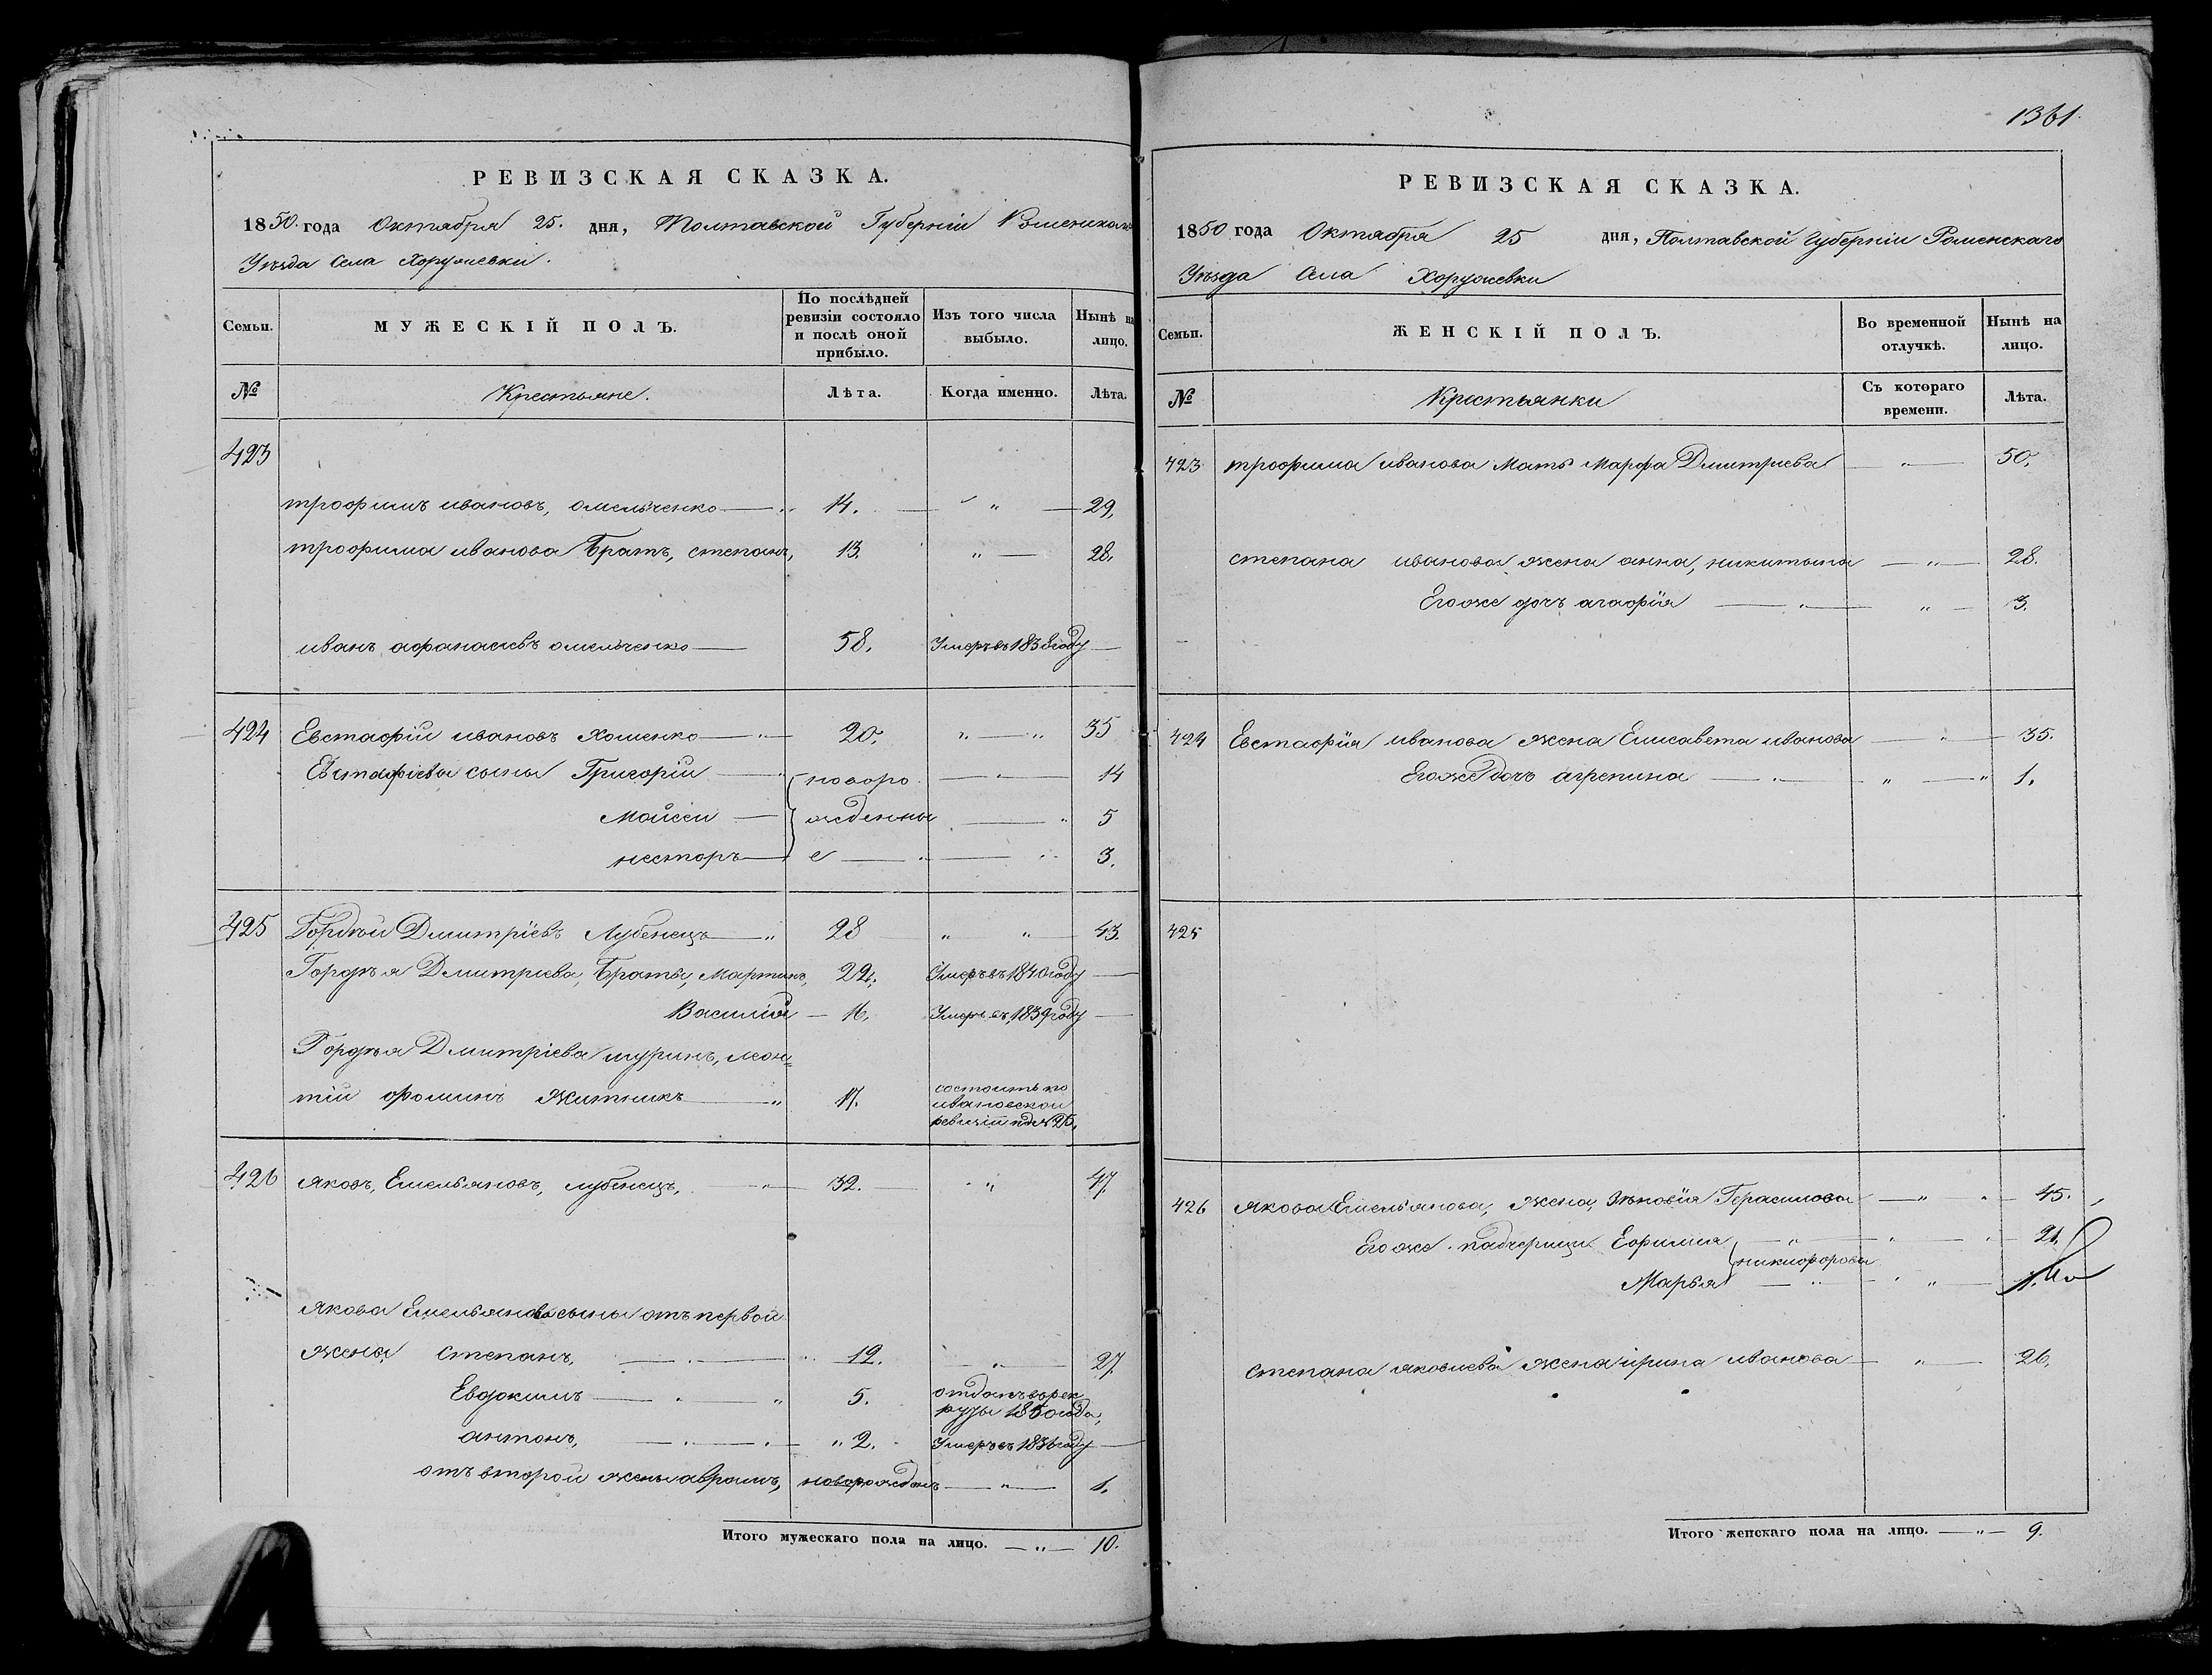 РЕВИЗСКАЯ СКАЗКА.
1850 года Октября 25. дня, Полтавской Губерніи Роменскаго
Уѣзда Села Хоружевки.
Семьи. МУЖЕСКІЙ ПОЛЪ. По послѣдней ревизіи состояло и послѣ оной прибыло. Изъ того числа выбыло. Нынѣ на лицо.
№ Крестьяне. Лѣта. Когда именно. Лѣта.
423
трофимъ ивановъ, омельченко 14. " 29,
трофима иванова Братъ, степанъ, 13 " 28,
иванъ афанасьевъ омельченко 58. Умеръ въ 1838 году
424 Евстафій ивановъ Хоменко 20. " " 35
Евстафіева сыны Григорій новоро " 14
Мойсей жденны " 5
несторъ е " 3.
425 Гордѣй Дмитріевъ Лубенецъ " 28 " " 43.
Гордѣя Дмитріева, Браты, Мартинъ, 22. Умеръ въ 1840 году
Василій 16. Умеръ въ 1839 году
Гордѣя Дмитріева шуринъ, леон=
тій фоминъ Житникъ " 17. состоитъ по
ивановской
ревизіи под № 25,
426 Яковъ, Емельяновъ, лубенецъ, " 32. " 47.
Якова Емельянова сыны отъ первой
жены степанъ, 12. " 27
Евдокимъ " 5. отданъ въ рек
руты 1850 года,
антонъ, " 2. Умеръ въ 1836 году
отъ второй жены аврамъ, новорожденъ " 1.
Итого мужескаго пола на лицо. " 10.
1361.
РЕВИЗСКАЯ СКАЗКА.
1850 года Октября 25 дня, Полтавской Губерніи Роменскаго
Уѣзда Села Хоружевки
Семьи. ЖЕНСКІЙ ПОЛЪ. Во временной отлучкѣ. Нынѣ на лицо.
№ Крестьянки Съ котораго времени. Лѣта.
423 трофима иванова Мать Марфа Дмитріева " 50.
степана иванова жена анна, никитына " 28.
Егоже дочъ агафія " " 3.
424 Евстафія иванова жена Елисавета иванова " 35.
Егоже дочъ агрепина " " " 1.
425
426 Якова Емельянова, жена, Зѣновія Герасимова " " 45.
Егоже падчерицы Ефимия " " 21.
никифоровы
Марья " "
степана яковлева жена ирина иванова " 26.
Итого женскаго пола на лицо. " 9.